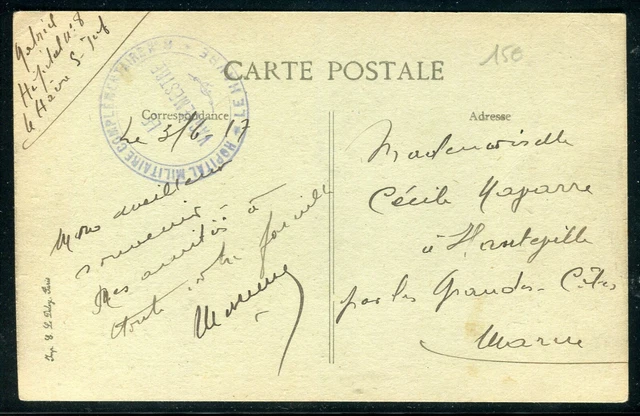 Gabriel
Hôpital n° 8
le Hâvre S-Inf
HOPITAL MILITAIRE COMPLEMENTAIRE N° 8
LE HAVRE
LE
VAGUEMESTRE
150
CARTE POSTALE
Correspondance
Adresse
Le 3/6/17
Mon meilleur
souvenir
Mes amitiés à
toute votre famille
Mademoiselle
Cécile
à Hauteville
par les Grandes-Côtes
Marne
Imp. E. Le Deley, Paris